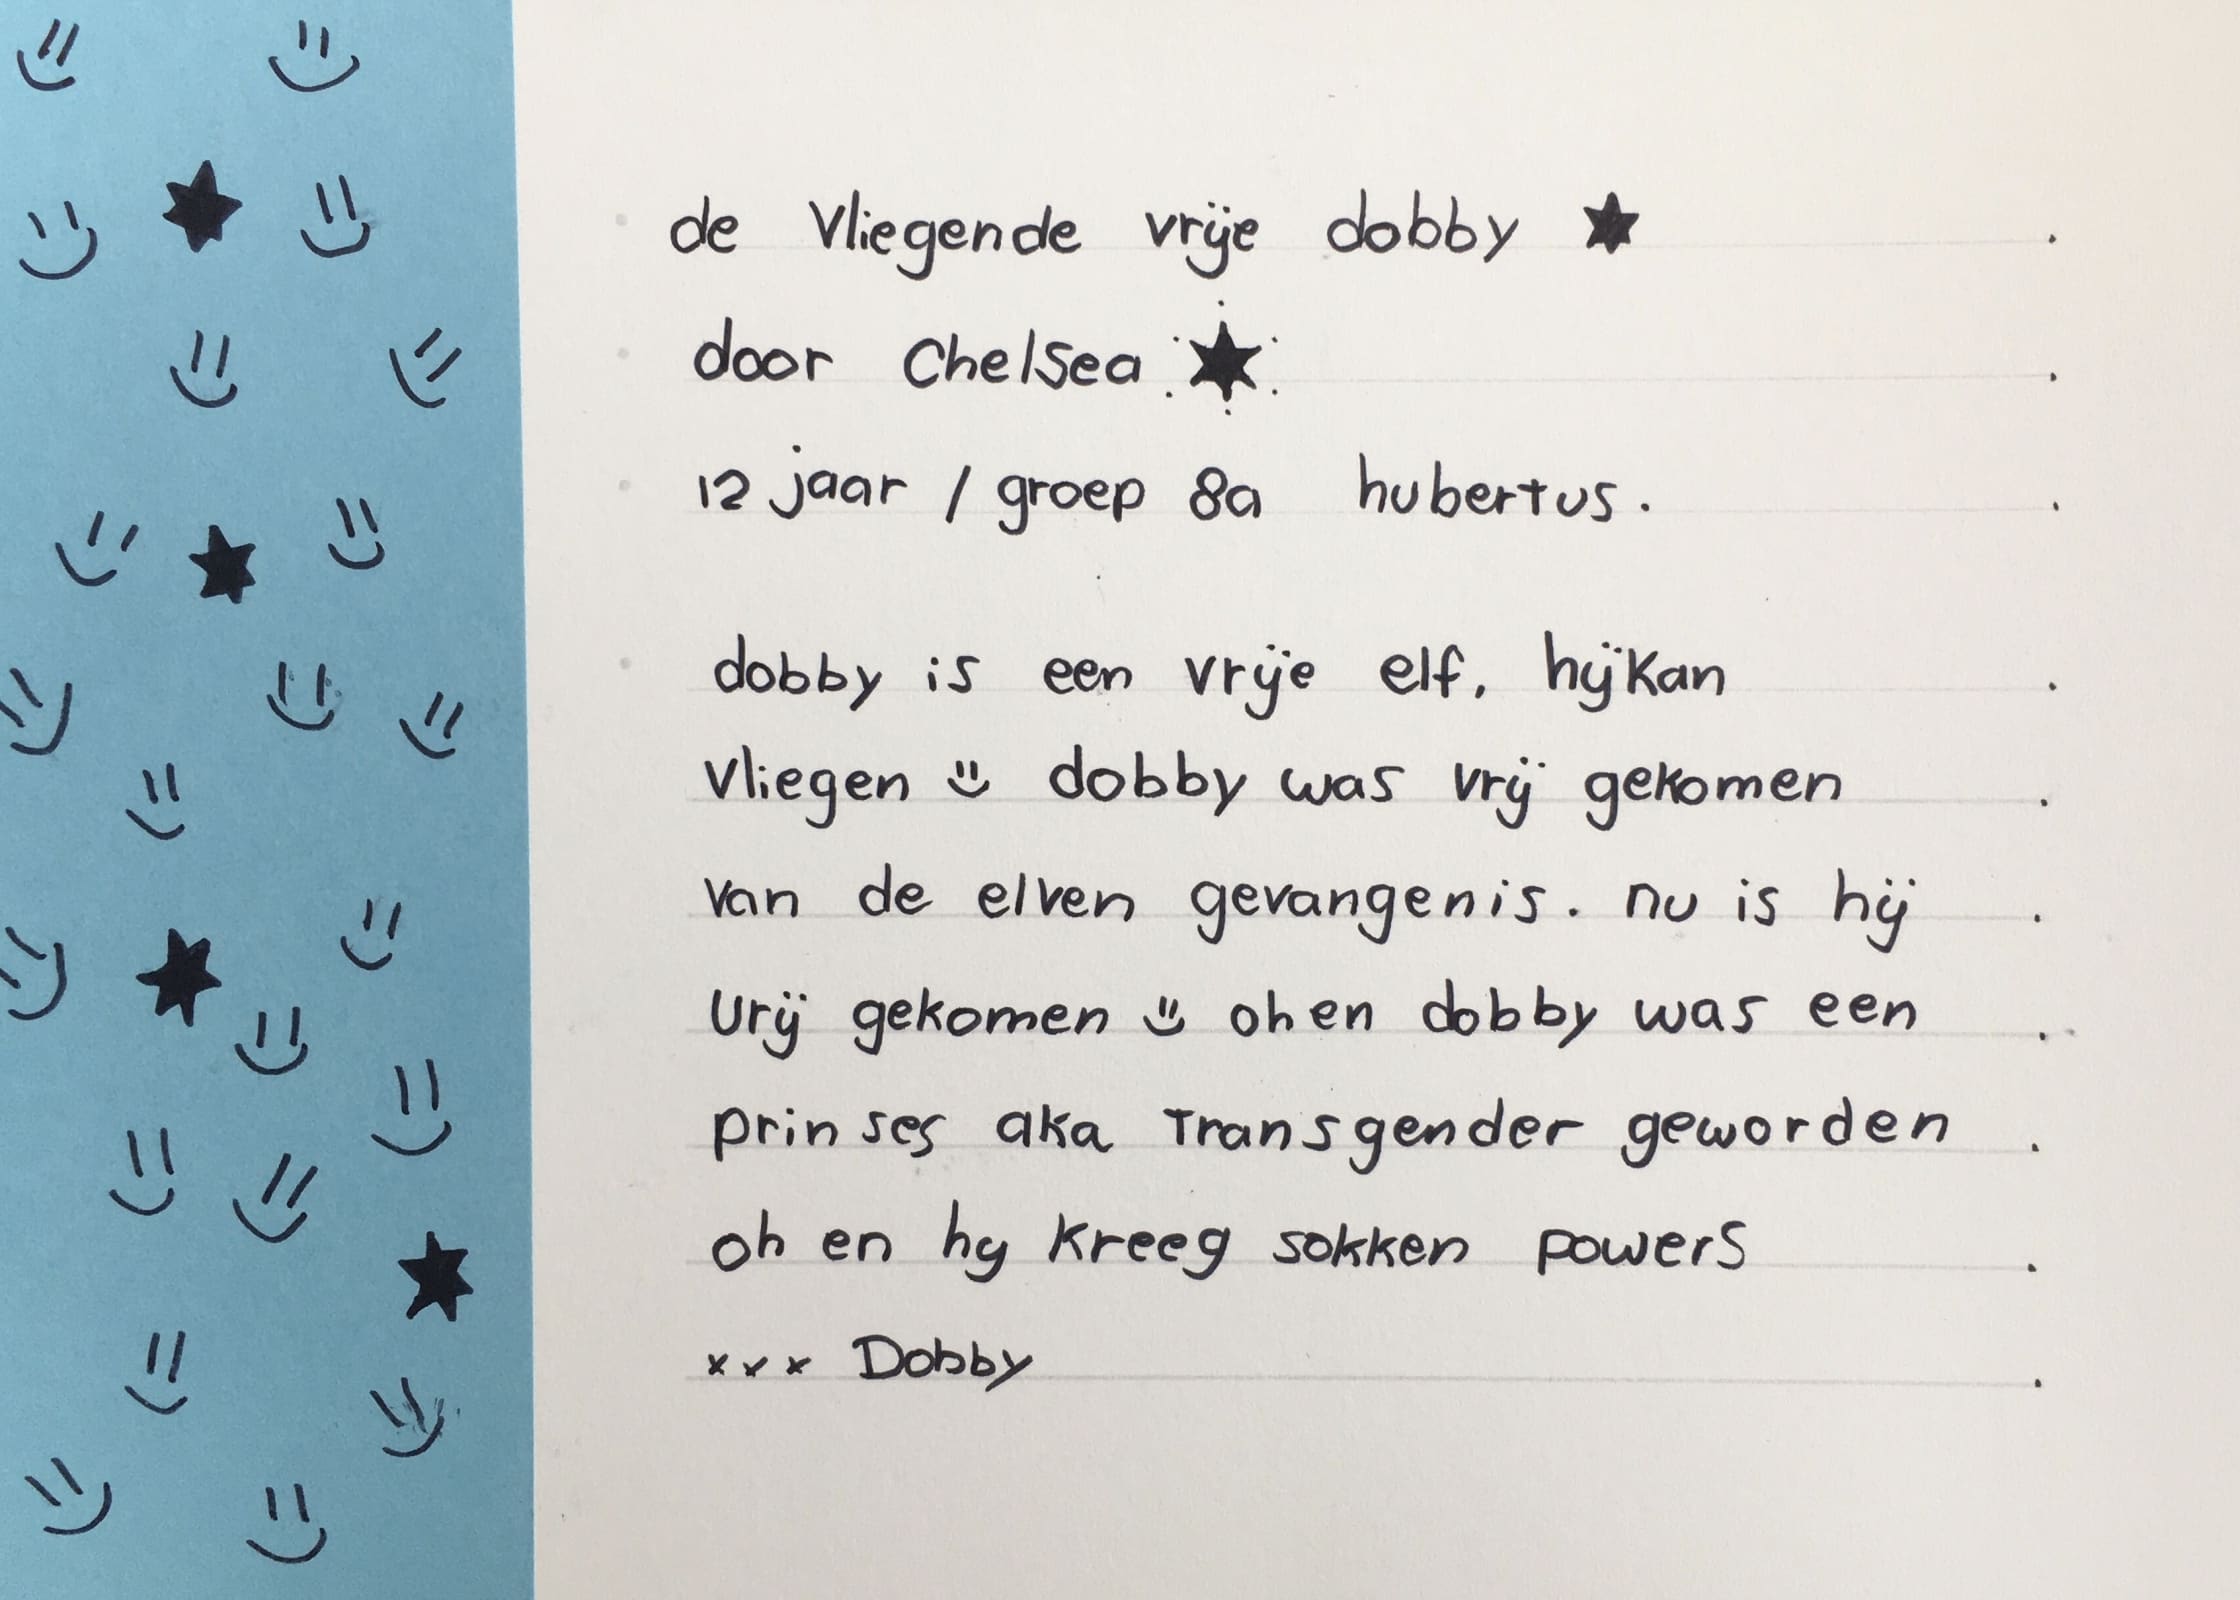 de Vliegende vrije dobby
door Chelsea
12 jaar / groep 8a hubertus.
dobby is een vrije elf, hij kan
vliegen dobby was vrij gekomen
van de elven gevangenis. nu is hij
vrij gekomen oh en dobby was een
prinses aka Transgender geworden
oh en hy kreeg sokken powers
xxx Dobby